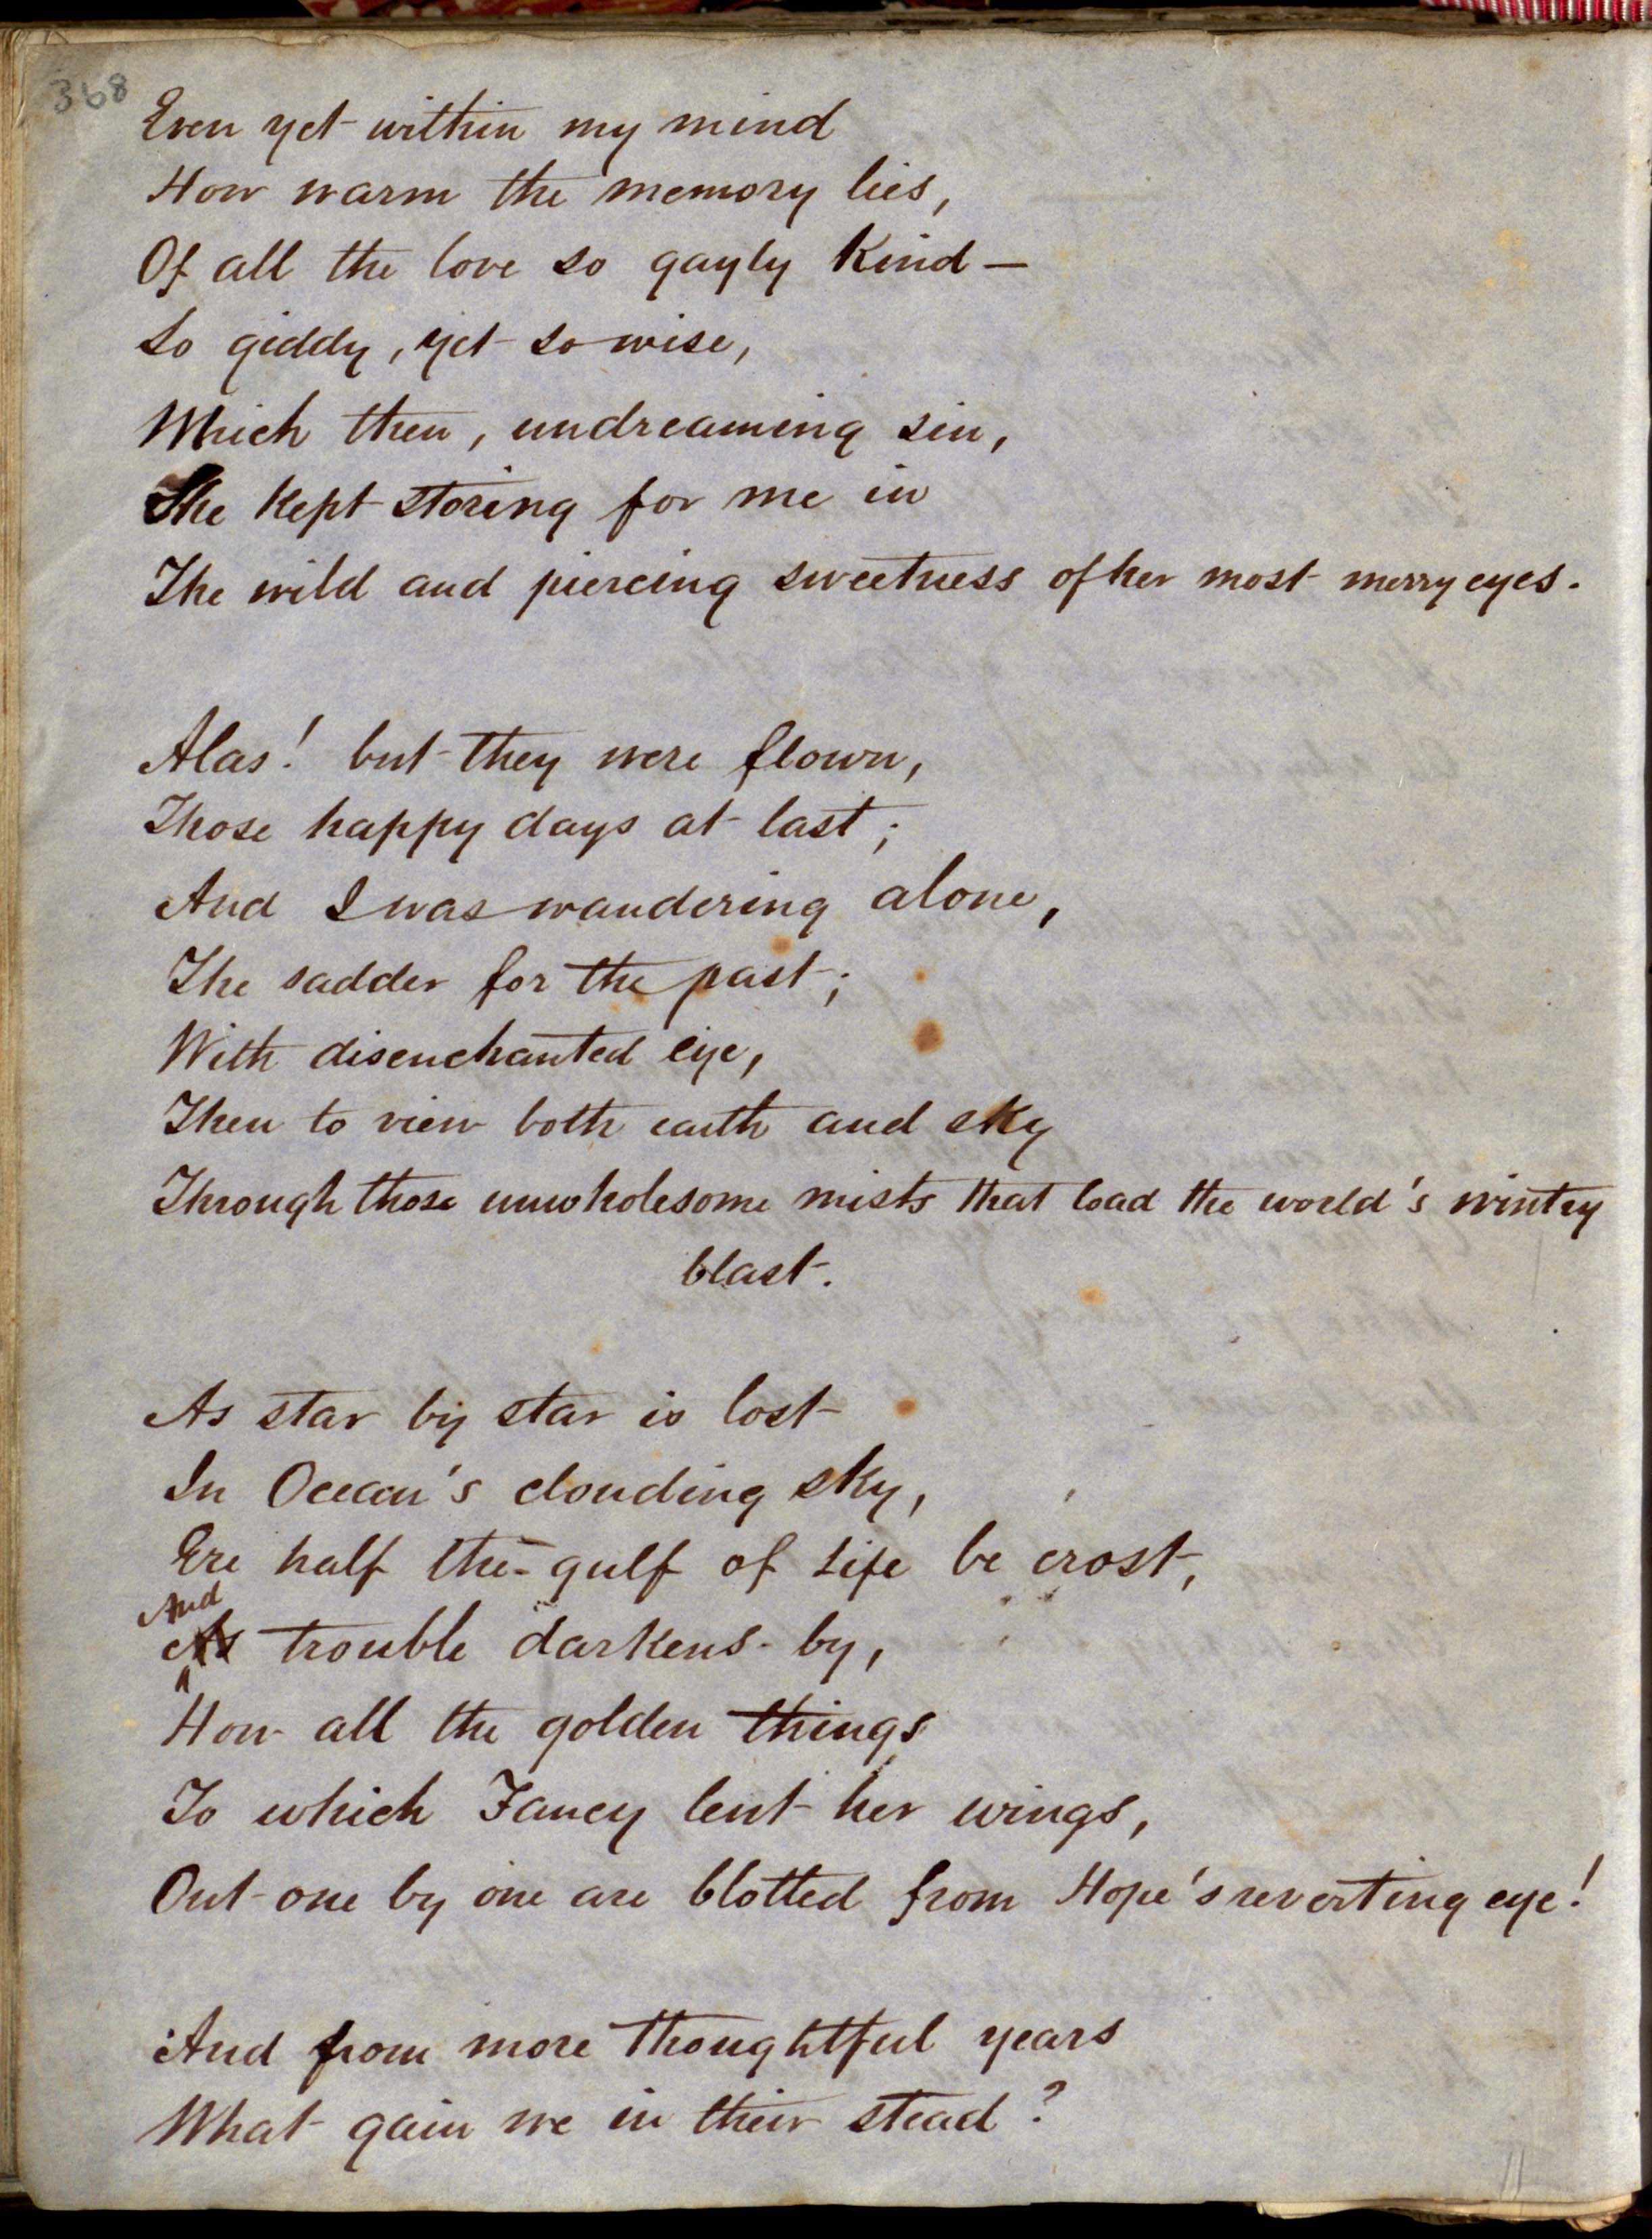 368
Even yet within my mind
How warm the memory lies,
Of all the love so gayly kind —
So giddy, yet so wise,
Which then, undreaming sin,
She kept storing for me in
The wild and piercing sweetness of her most merry eyes.
Alas! but they were flown,
Those happy days at last;
And I was wandering alone,
The sadder for the past;
With disenchanted eye,
Then to view both earth and sky
Through those unwholesome mists that load the world's wintry
blast.
As star by star is lost
In Ocean's clouding sky,
Ere half the gulf of life be crost,
And
As trouble darkens by,
How all the golden things
To which Fancy lent her wings,
Out one by one are blotted from Hope's reverting eye!
And from more thoughtful years
What gain we in their stead?